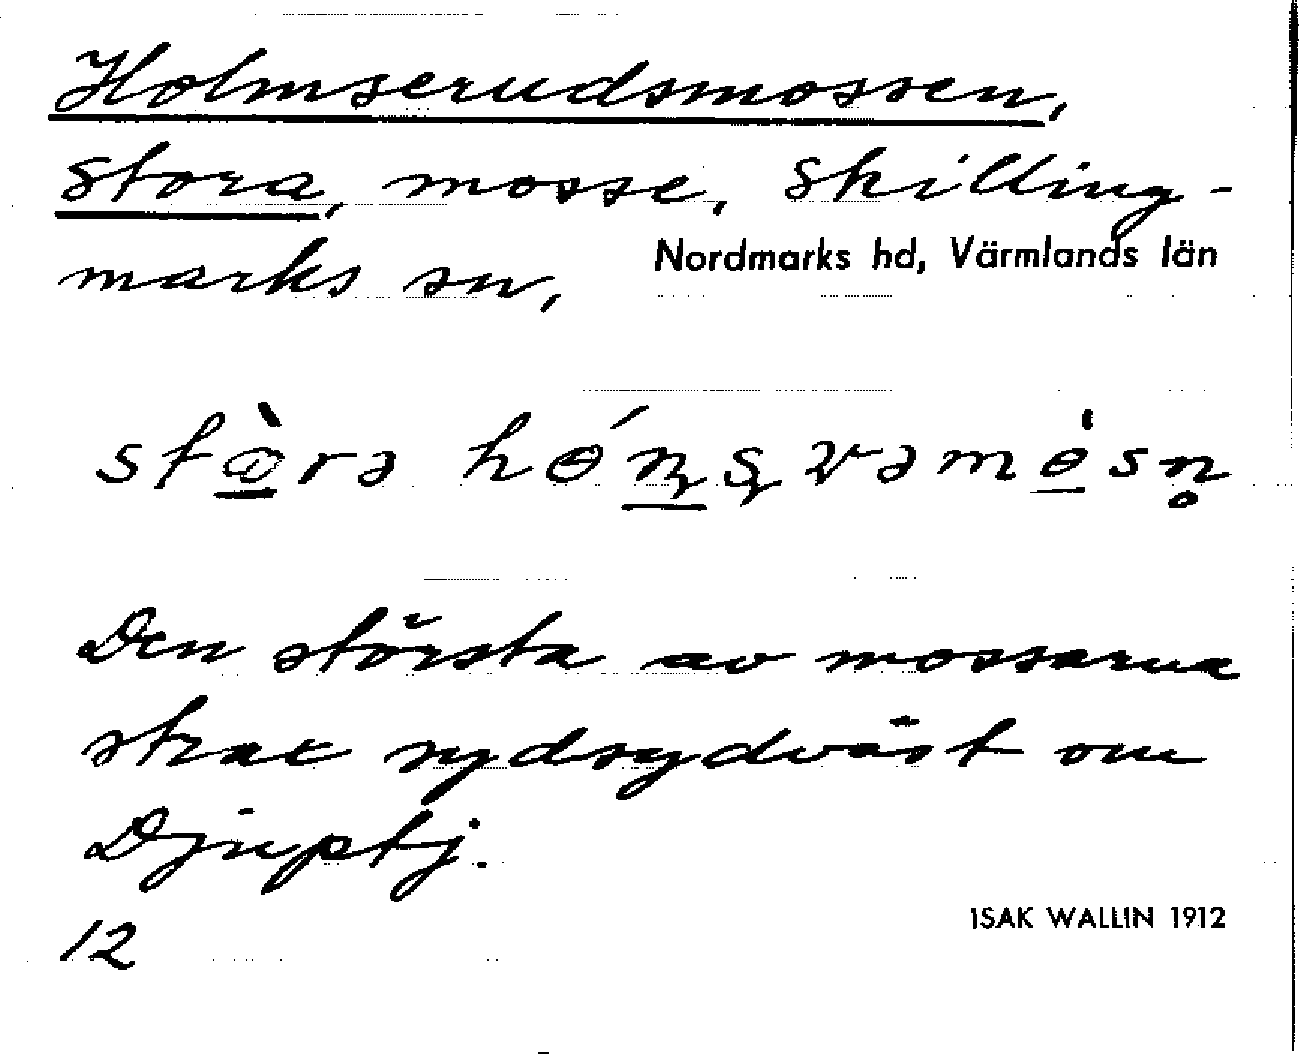 Holmserudsmossen,
stora, mosse, Skilling-
marks sn, Nordmarks hd, Värmlands län
Den största av mossarna
strax sydsydväst om
Djuptj.
12 ISAK WALLIN 1912